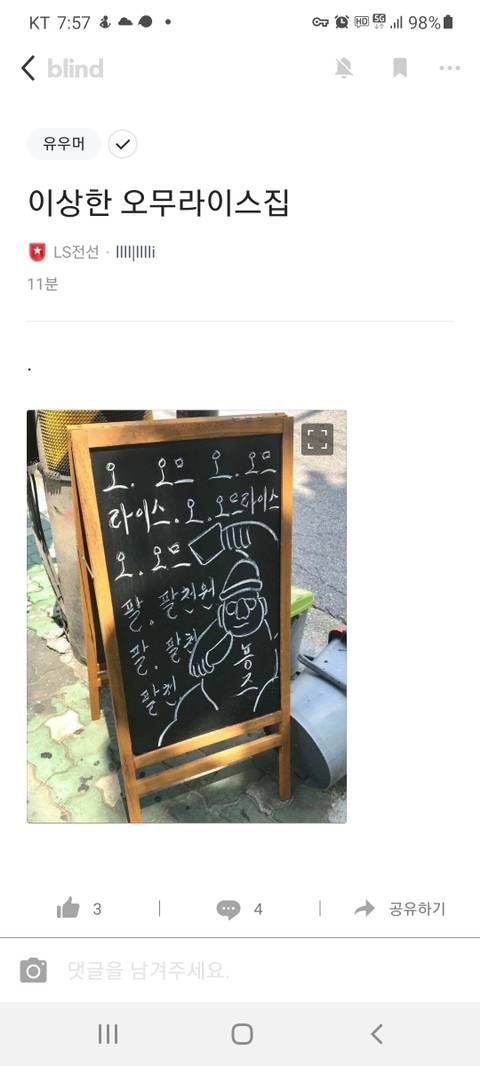 KT 7:57
HD 5G 98%
blind
유우머
이상한 오무라이스집
LS전선 · llll|lllli
11분
.
오. 오므 오. 오므
라이스. 오. 오므라이스
오. 오므
팔. 팔천원
팔. 팔천
팔천
뿅
즈
3
4
공유하기
댓글을 남겨주세요.